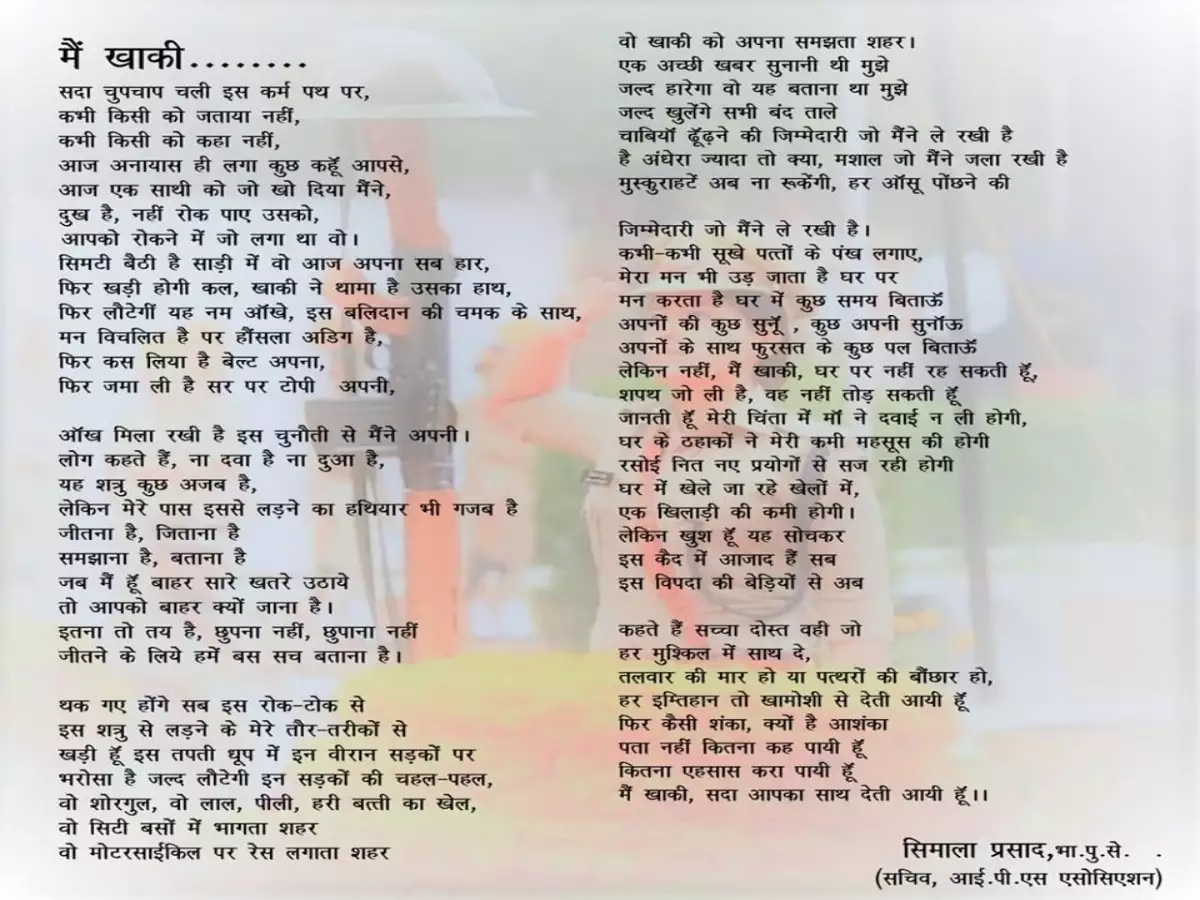 मैं खाकी........
सदा चुपचाप चली इस कर्म पथ पर,
कभी किसी को जताया नहीं,
कभी किसी को कहा नहीं,
आज अनायास ही लगा कुछ कहूॅं आपसे,
आज एक साथी को जो खो दिया मैंने,
दुख है, नहीं रोक पाए उसको,
आपको रोकने में जो लगा था वो।
सिमटी बैठी है साड़ी में वो आज अपना सब हार,
फिर खड़ी होगी कल, खाकी ने थामा है उसका हाथ,
फिर लौटेगीं यह नम ऑंखे, इस बलिदान की चमक के साथ,
मन विचलित है पर हौंसला अडिग है,
फिर कस लिया है बेल्ट अपना,
फिर जमा ली है सर पर टोपी अपनी,
ऑंख मिला रखी है इस चुनौती से मैंने अपनी।
लोग कहते हैं, ना दवा है ना दुआ है,
यह शत्रु कुछ अजब है,
लेकिन मेरे पास इससे लड़ने का हथियार भी गजब है
जीतना है, जिताना है
समझाना है, बताना है
जब मैं हूॅं बाहर सारे खतरे उठाये
तो आपको बाहर क्यों जाना है।
इतना तो तय है, छुपना नहीं, छुपाना नहीं
जीतने के लिये हमें बस सच बताना है।
थक गए होंगे सब इस रोक-टोक से
इस शत्रु से लड़ने के मेरे तौर-तरीकों से
खड़ी हूॅं इस तपती धूप में इन वीरान सड़कों पर
भरोसा है जल्द लौटेगी इन सड़कों की चहल-पहल,
वो शोरगुल, वो लाल, पीली, हरी बत्ती का खेल,
वो सिटी बसों में भागता शहर
वो मोटरसाईकिल पर रेस लगाता शहर
वो खाकी को अपना समझता शहर।
एक अच्छी खबर सुनानी थी मुझे
जल्द हारेगा वो यह बताना था मुझे
जल्द खुलेंगे सभी बंद ताले
चाबियॉं ढूॅंढ़ने की जिम्मेदारी जो मैंने ले रखी है
है अंधेरा ज्यादा तो क्या, मशाल जो मैंने जला रखी है
मुस्कुराहटें अब ना रूकेंगी, हर ऑंसू पोंछने की
जिम्मेदारी जो मैंने ले रखी है।
कभी-कभी सूखे पत्तों के पंख लगाए,
मेरा मन भी उड़ जाता है घर पर
मन करता है घर में कुछ समय बिताऊॅं
अपनों की कुछ सुनूॅं , कुछ अपनी सुनॉऊ
अपनों के साथ फुरसत के कुछ पल बिताऊॅं
लेकिन नहीं, मैं खाकी, घर पर नहीं रह सकती हूॅं,
शपथ जो ली है, वह नहीं तोड़ सकती हूॅं
जानती हूॅं मेरी चिंता में मॉं ने दवाई न ली होगी,
घर के ठहाकों ने मेरी कमी महसूस की होगी
रसोई नित नए प्रयोगों से सज रही होगी
घर में खेले जा रहे खेलों में,
एक खिलाड़ी की कमी होगी।
लेकिन खुश हूॅं यह सोचकर
इस कैद में आजाद हैं सब
इस विपदा की बेड़ियों से अब
कहते हैं सच्चा दोस्त वही जो
हर मुश्किल में साथ दे,
तलवार की मार हो या पत्थरों की बौंछार हो,
हर इम्तिहान तो खामोशी से देती आयी हूॅं
फिर कैसी शंका, क्यों है आशंका
पता नहीं कितना कह पायी हूॅं
कितना एहसास करा पायी हूॅं
मैं खाकी, सदा आपका साथ देती आयी हूॅं।।
सिमाला प्रसाद,भा.पु.से. .
(सचिव, आई.पी.एस एसोसिएशन)